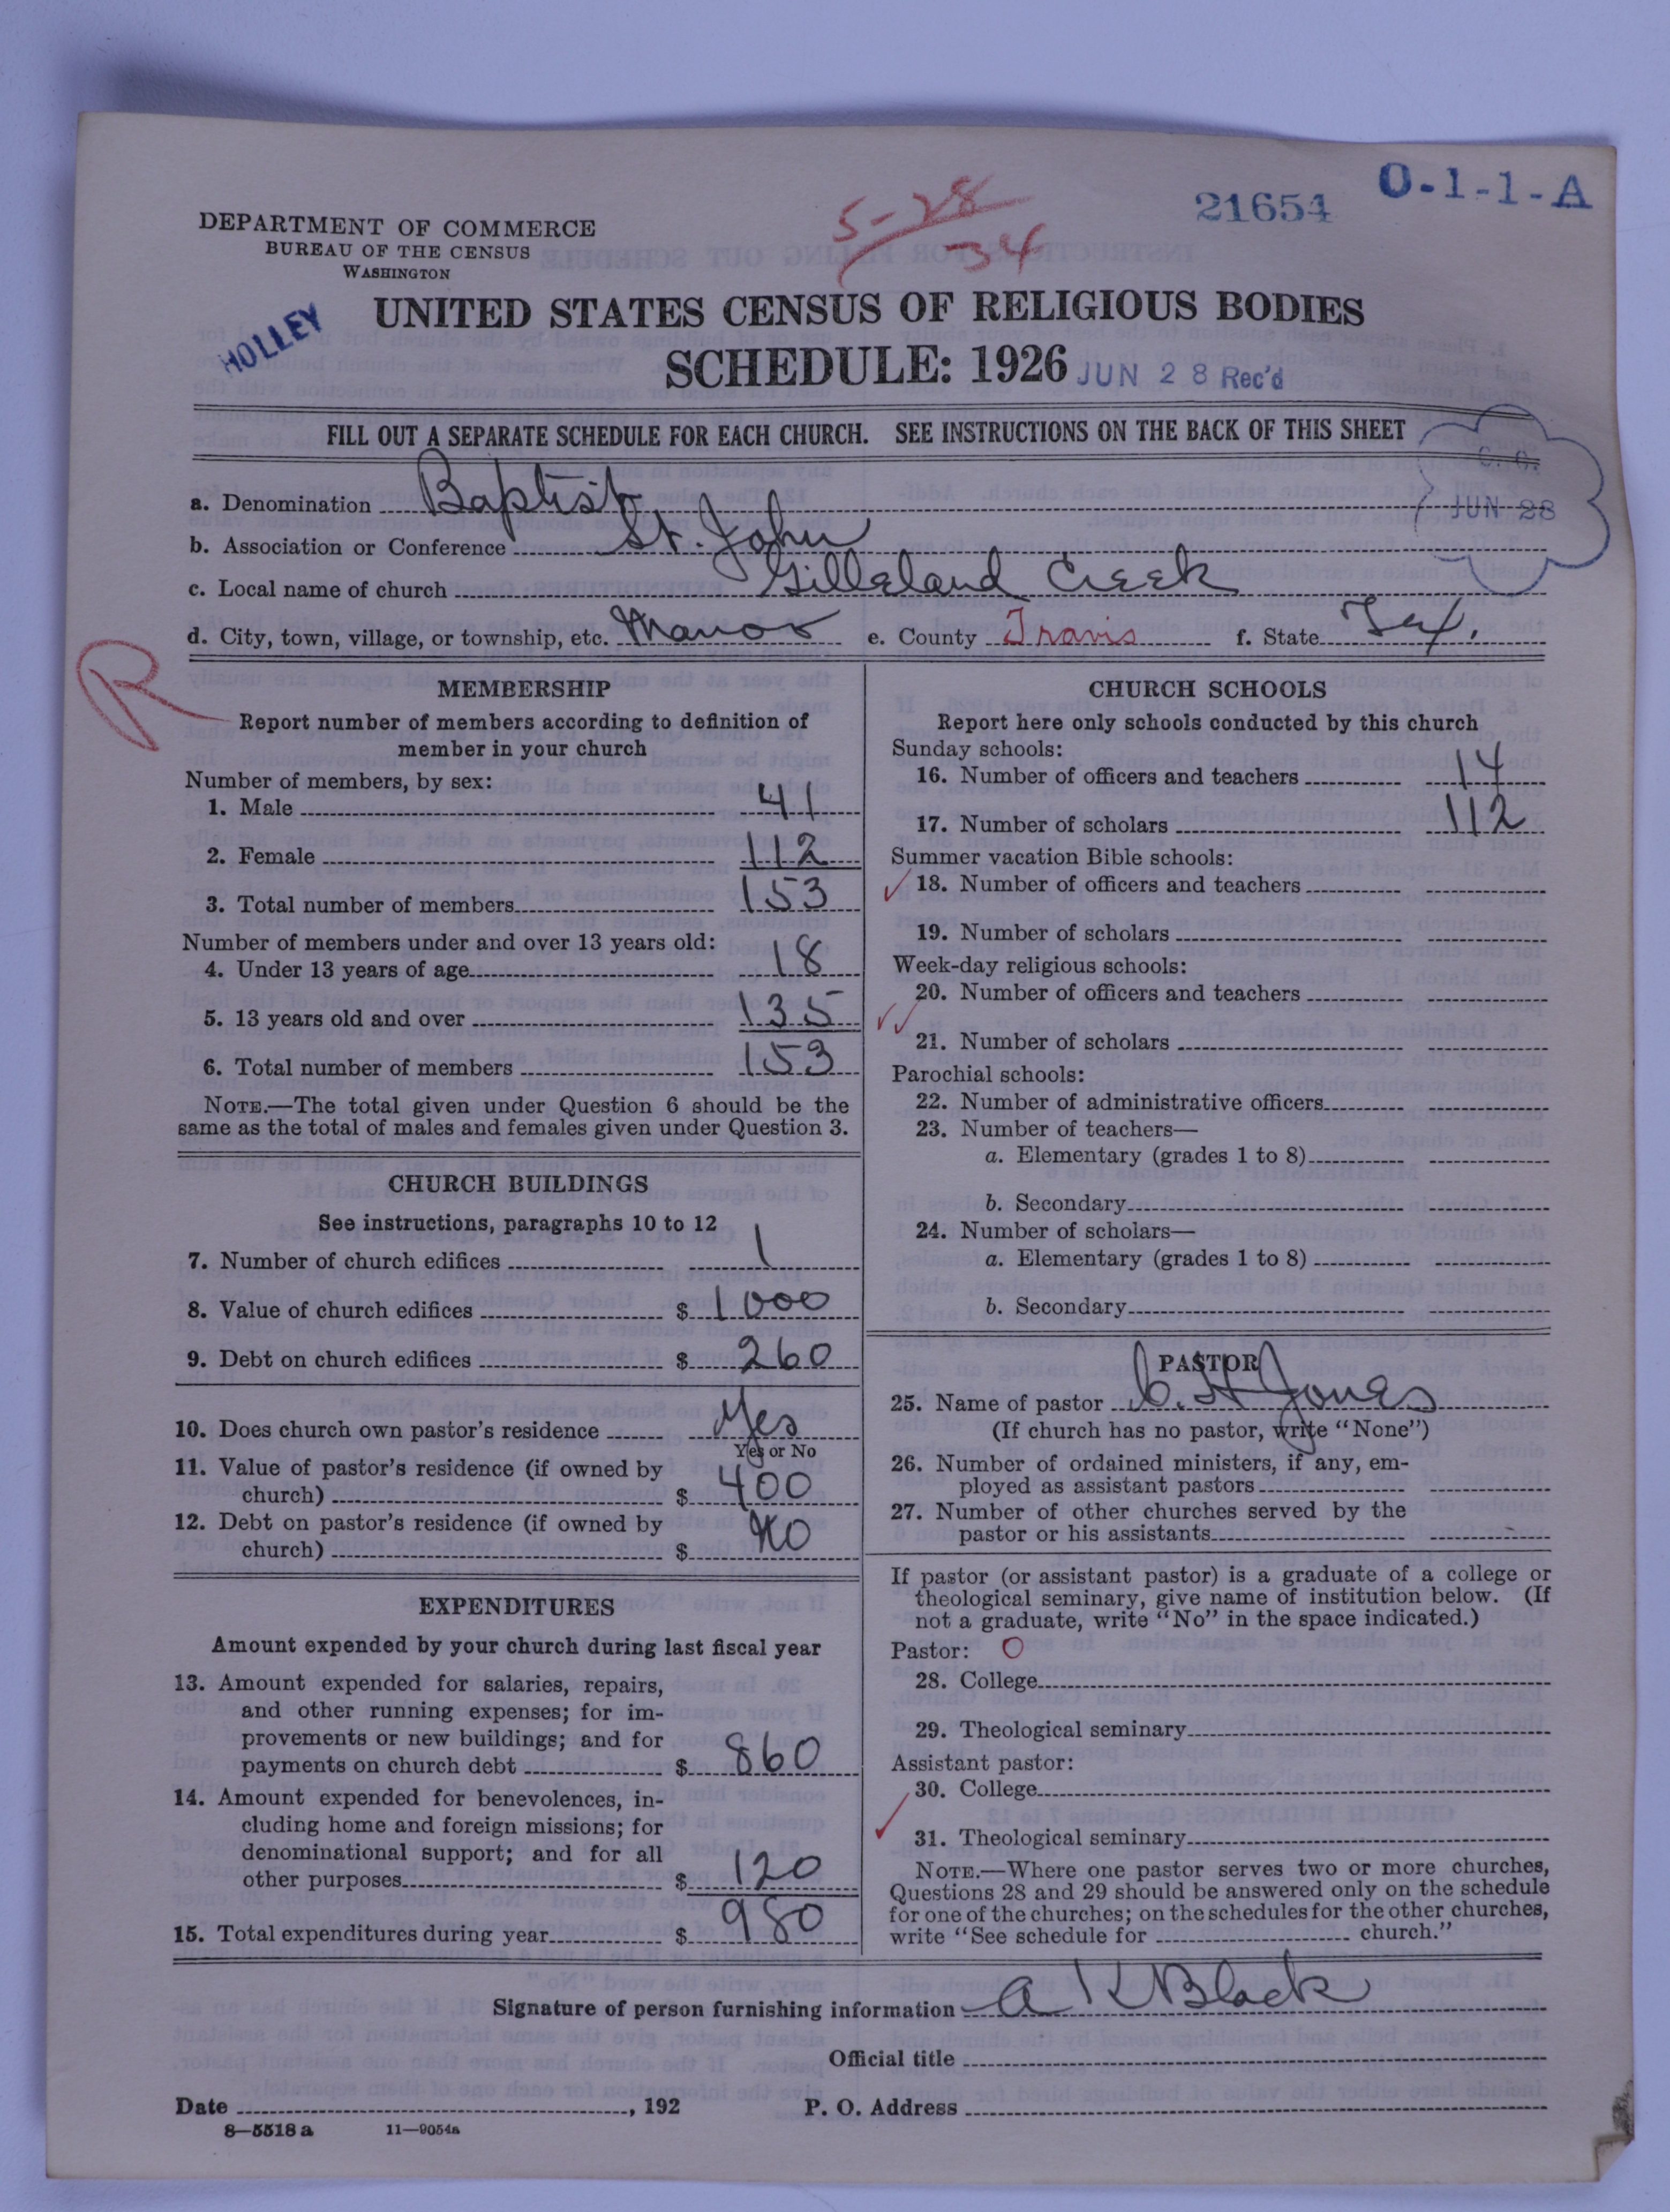 DEPARTMENT OF COMMERCE
BUREAU OF THE CENSUS
WASHINGTON
5-28
-34
21654
O-1-1-A
HOLLEY
UNITED STATES CENSUS OF RELIGIOUS BODIES
SCHEDULE: 1926
JUN 28 Rec'd
FILL OUT A SEPARATE SCHEDULE FOR EACH CHURCH. SEE INSTRUCTIONS ON THE BACK OF THIS SHEET
JUN 28
a. Denomination Baptist
b. Association or Conference St. John
c. Local name of church Gilleland Creek
d. City, town, village, or township, etc. Manor e. County Travis f. State Tex.
R
MEMBERSHIP
Report number of members according to definition of
member in your church
Number of members, by sex:
1. Male 41
2. Female 112
3. Total number of members 153
Number of members under and over 13 years old:
4. Under 13 years of age 18
5. 13 years old and over 135
6. Total number of members 153
NOTE.—The total given under Question 6 should be the
same as the total of males and females given under Question 3.
CHURCH BUILDINGS
See instructions, paragraphs 10 to 12
7. Number of church edifices 1
8. Value of church edifices $ 1000
9. Debt on church edifices $ 260
10. Does church own pastor's residence Yes
Yes or No
11. Value of pastor's residence (if owned by
church) $ 400
12. Debt on pastor's residence (if owned by
church) $ NO
EXPENDITURES
Amount expended by your church during last fiscal year
13. Amount expended for salaries, repairs,
and other running expenses; for im-
provements or new buildings; and for
payments on church debt $ 860
14. Amount expended for benevolences, in-
cluding home and foreign missions; for
denominational support; and for all
other purposes $ 120
15. Total expenditures during year $ 980
CHURCH SCHOOLS
Report here only schools conducted by this church
Sunday schools:
16. Number of officers and teachers 14
17. Number of scholars 112
Summer vacation Bible schools:
18. Number of officers and teachers
19. Number of scholars
Week-day religious schools:
20. Number of officers and teachers
21. Number of scholars
Parochial schools:
22. Number of administrative officers
23. Number of teachers—
a. Elementary (grades 1 to 8)
b. Secondary
24. Number of scholars—
a. Elementary (grades 1 to 8)
b. Secondary
PASTOR
25. Name of pastor C. H Jones
(If church has no pastor, write "None")
26. Number of ordained ministers, if any, em-
ployed as assistant pastors
27. Number of other churches served by the
pastor or his assistants
If pastor (or assistant pastor) is a graduate of a college or
theological seminary, give name of institution below. (If
not a graduate, write "No" in the space indicated.)
Pastor: O
28. College
29. Theological seminary
Assistant pastor:
30. College
31. Theological seminary
NOTE.—Where one pastor serves two or more churches,
Questions 28 and 29 should be answered only on the schedule
for one of the churches; on the schedules for the other churches,
write "See schedule for church."
Signature of person furnishing information A K Black
Official title
Date , 192 P. O. Address
8—5518 a 11—9054a